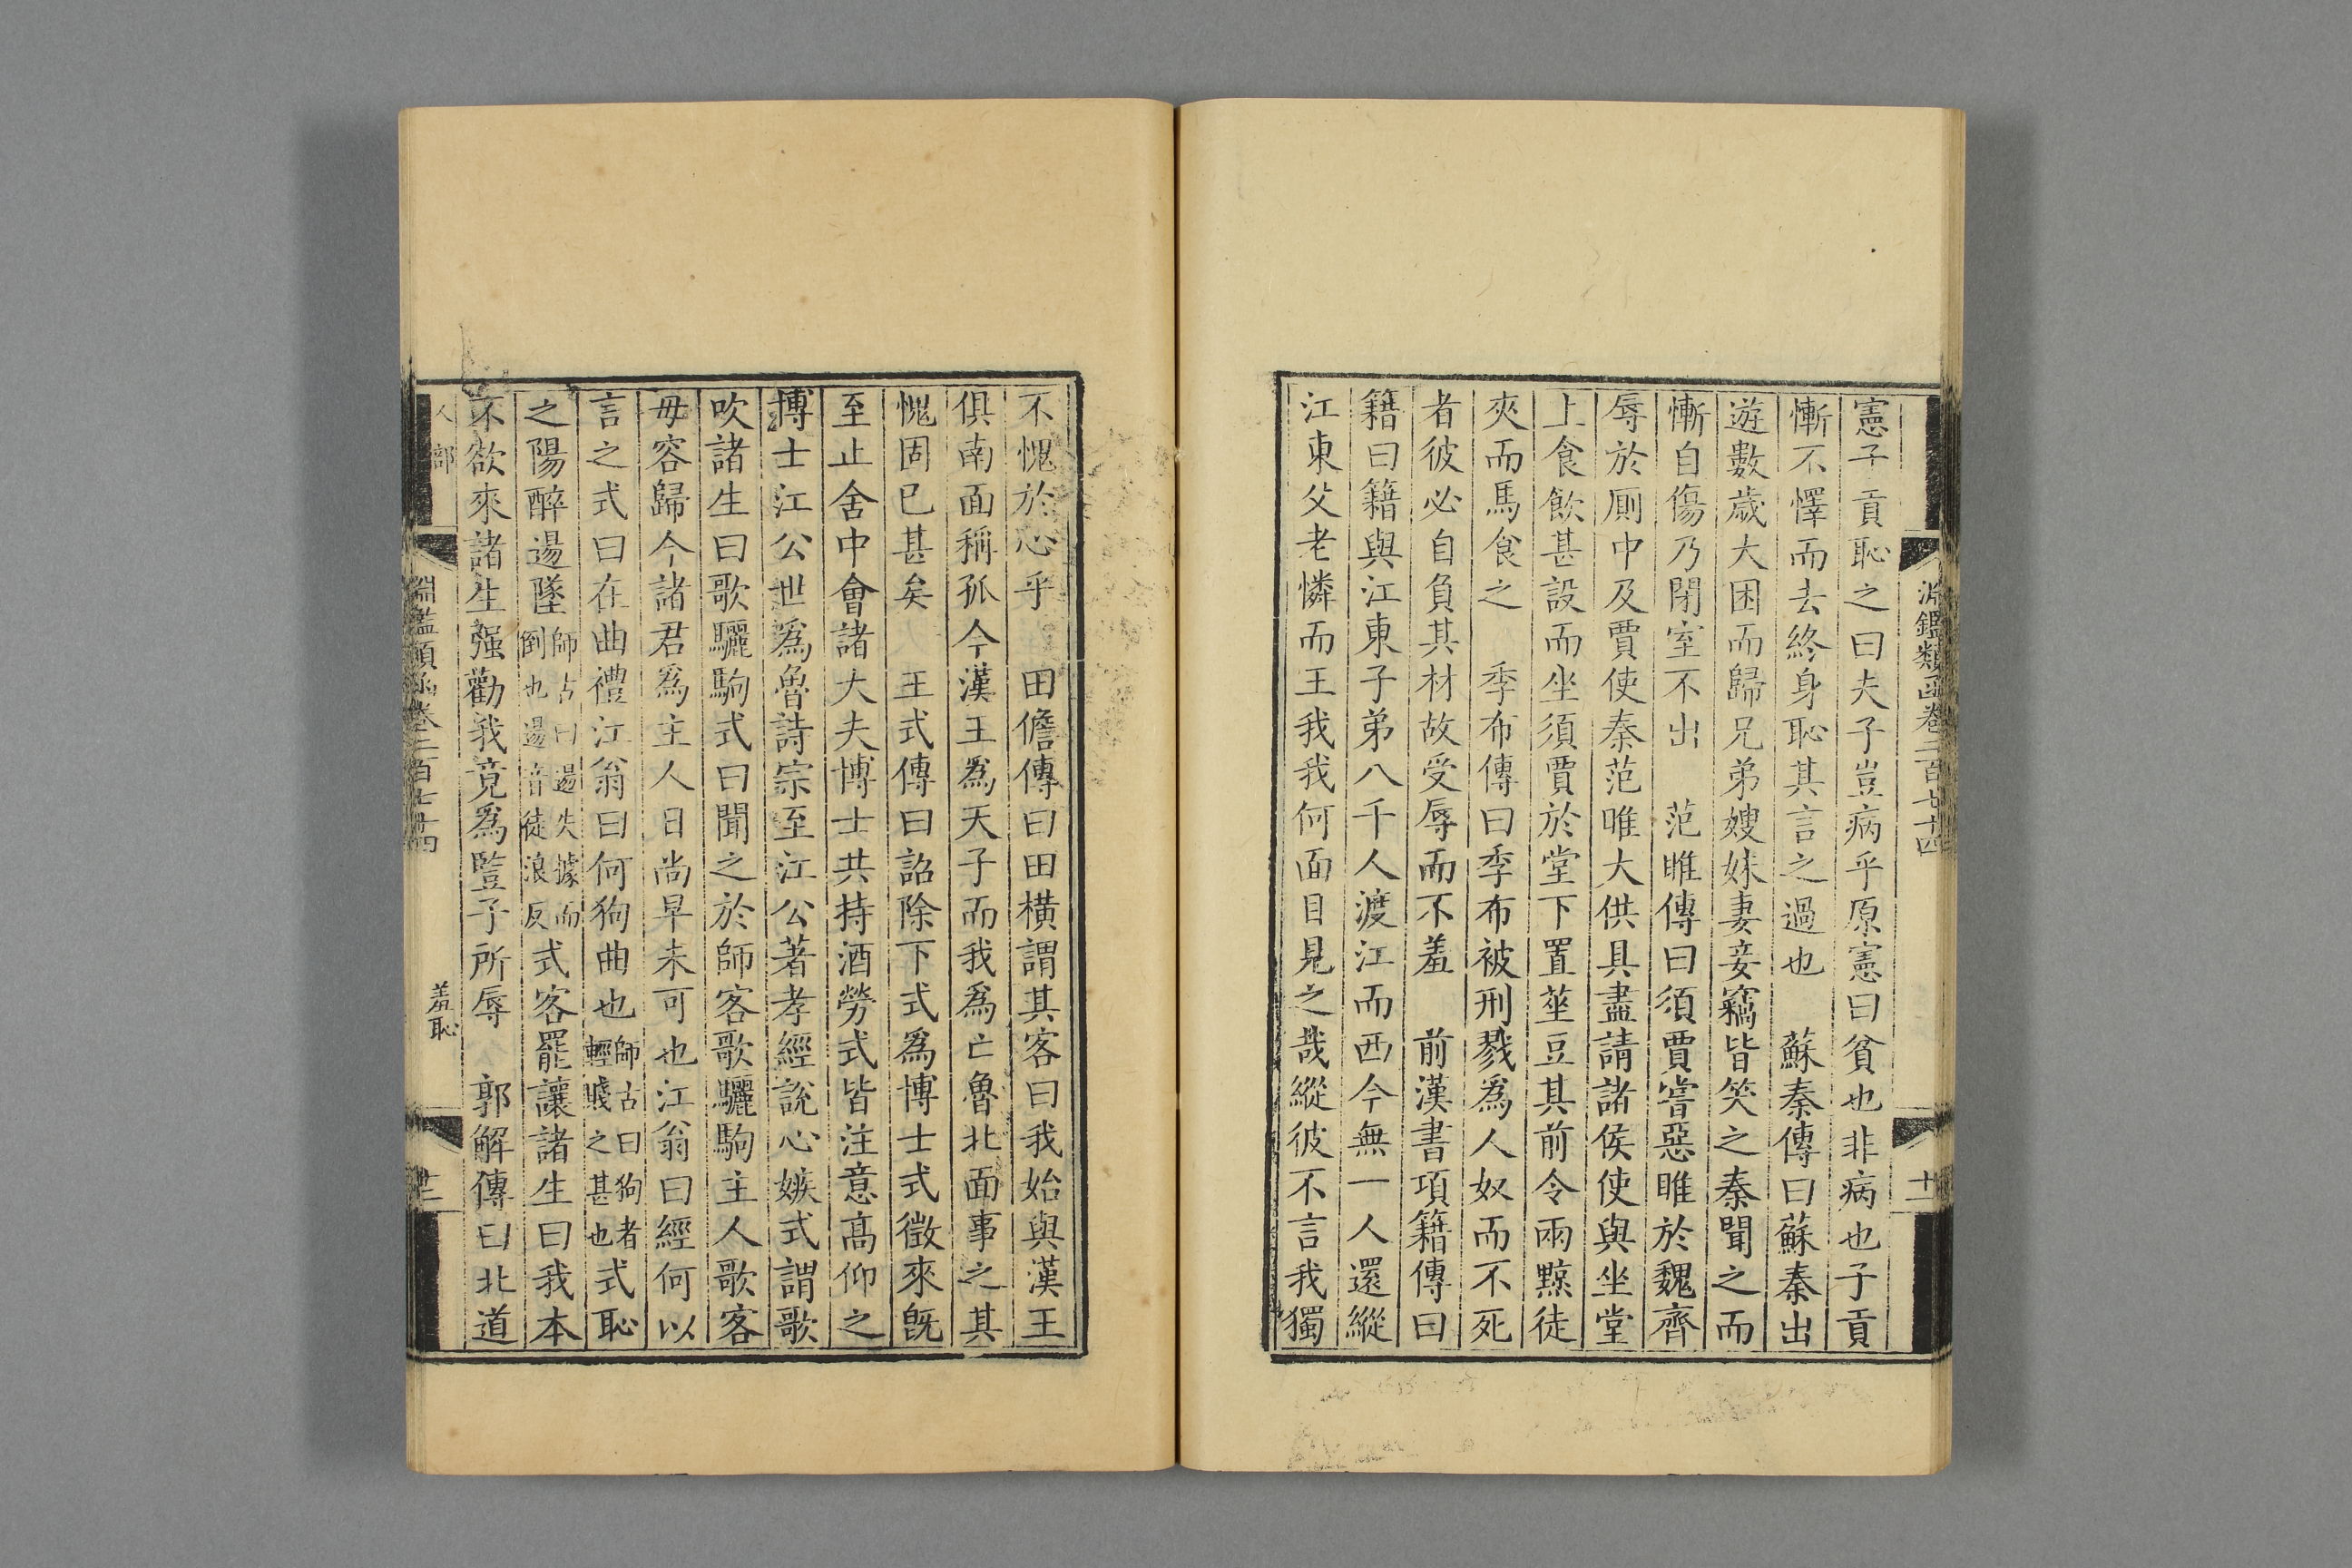 淵鑑類函卷三百十四
十一
憲子貢恥之曰夫子豈病乎原憲曰貧也非病也子貢
慚不懌而去終身恥其言之過也　蘇秦傳曰蘇秦出
遊數歲大困而歸兄弟嫂妹妻妾竊皆笑之秦聞之而
慚自傷乃閉室不出　范雎傳曰須賈嘗惡雎於魏齊
辱於厠中及賈使秦范雎大供具盡請諸侯使與坐堂
上食飲甚設而坐須賈於堂下置莝豆其前令兩黥徒
夾而馬食之　季布傳曰季布被刑戮爲人奴而不死
者彼必自負其材故受辱而不羞　前漢書項籍傳曰
籍曰籍與江東子弟八千人渡江而西今無一人還縱
江東父老憐而王我我何面目見之哉縱彼不言我獨
不愧於心乎　田儋傳曰田橫謂其客曰我始與漢王
俱南面稱孤今漢王爲天子而我爲亡魯北面事之其
愧固已甚矣　王式傳曰詔除下式爲博士式徵來旣
至止舍中會諸大夫博士共持酒勞式皆注意高仰之
博士江公世爲魯詩宗至江公著孝經說心嫉式謂歌
吹諸生曰歌驪駒式曰聞之於師客歌驪駒主人歌客
毋容歸今諸君爲主人日尚早未可也江翁曰經何以
言之式曰在曲禮江翁曰何狗曲也師古曰狗者輕賤之甚也式恥
之陽醉逿墜師古曰逿失據而倒也逿音徒浪反式客罷讓諸生曰我本
不欲來諸生强勸我竟爲豎子所辱　郭解傳曰北道
人部
淵鑑類函卷三百十四
羞恥